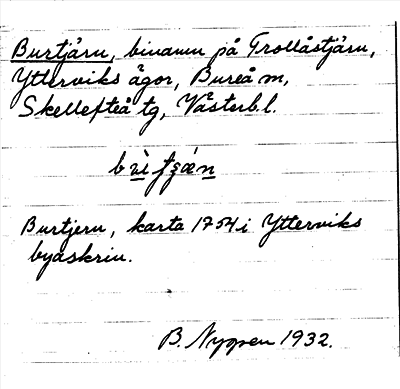 Burtjärn, binamn på Trollåstjärn,
Ytterviks ägor, Bureå sn,
Skellefteå tg, Västerb.l.
Burtjern, karta 1754 i Ytterviks
byaskrin.
B. Nygren 1932.